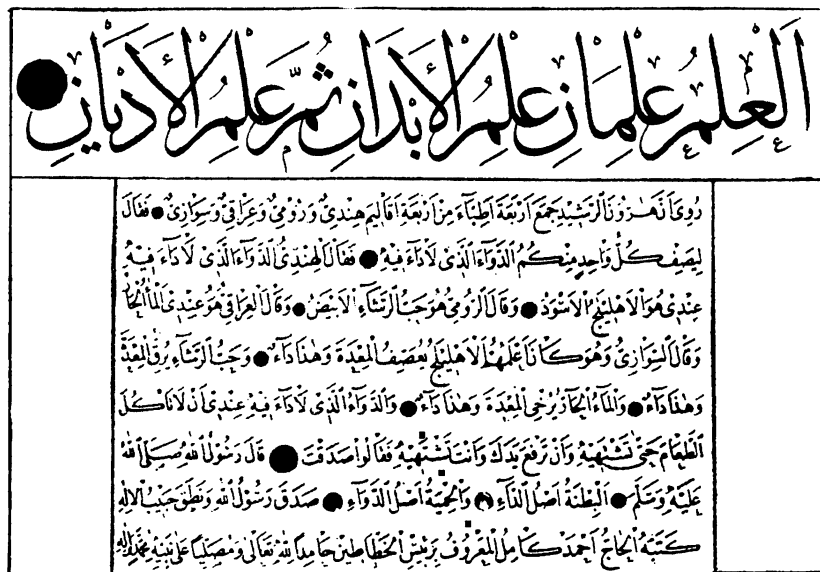 اَلْعِلْمُ عِلْمَانِ عِلْمُ الْأَبْدَانِ ثُمَّ عِلْمُ الْأَدْيَانِ
رُوِىَ اَنَّ هٰرُونَ الرَّشِيْدِ جَمَعَ اَرْبَعَةَ اَطِبَّاءَ مِنْ اَرْبَعَةِ اَقَالِيمَ هِنْدِىٌّ وَرُومِىٌّ وَعِرَاقِىٌّ وَسِوَارِىٌّ فَقَالَ
لِيَصِفْ كُلُّ وَاحِدٍ مِنْكُمُ الدَّوَاءَ الَّذِى لَا دَاءَ فِيهِ فَقَالَ الْهِنْدِىُّ الدَّوَاءُ الَّذِى لَا دَاءَ فِيهِ
عِنْدِى هُوَ الْاَهْلِيلِجُ الْاَسْوَدُ وَقَالَ الرُّومِىُّ هُوَ حَبُّ الرَّشَاءِ الْاَبْيَضُ وَقَالَ الْعِرَاقِىُّ هُوَ عِنْدِى الْمَاءُ الْحَارُّ
وَقَالَ السِّوَارِىُّ وَهُوَ كَانَ اَعْلَمَهُمُ الْاَهْلِيلِجُ يُعْصِفُ الْمَعِدَةَ وَهٰذَا دَاءٌ وَحَبُّ الرَّشَاءِ يُرِقُّ الْمَعِدَةَ
وَهٰذَا دَاءٌ وَالْمَاءُ الْحَارُّ يُرْخِى الْمَعِدَةَ وَهٰذَا دَاءٌ وَالدَّوَاءُ الَّذِى لَا دَاءَ فِيهِ عِنْدِى اَنْ لَا تَاْكُلَ
الطَّعَامَ حَتَّى تَشْتَهِيَهِ وَاَنْ تَرْفَعَ يَدَكَ وَاَنْتَ تَشْتَهِيهِ فَقَالُوا صَدَقْتَ قَالَ رَسُولُ اللّٰهِ صَلَّى اللّٰهُ
عَلَيْهِ وَسَلَّمَ اَلْبِطْنَةُ اَصْلُ الدَّاءِ وَالْحِمْيَةُ اَصْلُ الدَّوَاءِ صَدَقَ رَسُولُ اللّٰهِ وَنَطَقَ حَبِيبُ الْاِلٰهِ
كَتَبَهُ الْحَاجُّ اَحْمَدْ كَامِلُ الْمَعْرُوفُ بِرَئِيسِ الْخَطَّاطِينَ حَامِدًا لِلّٰهِ تَعَالٰى وَمُصَلِّيًا عَلٰى نَبِيِّهِ مُحَمَّدٍ وَاٰلِهِ